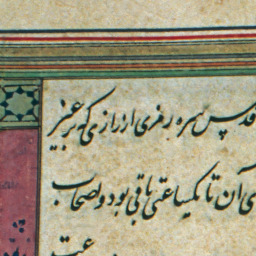 قدس سره رمزی از رازی که بر عبیر
ی آن تا یکساعتی باقی بود و اصحاب